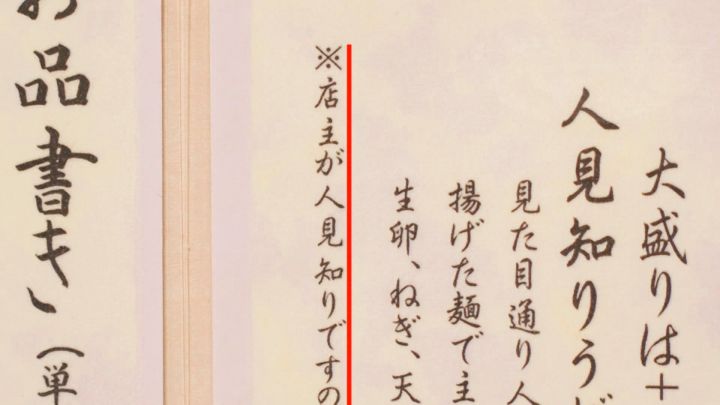 大盛りは＋
人見知りうど
見た目通り人
揚げた麺で主
生卵、ねぎ、天
※店主が人見知りですの
お品書き（単